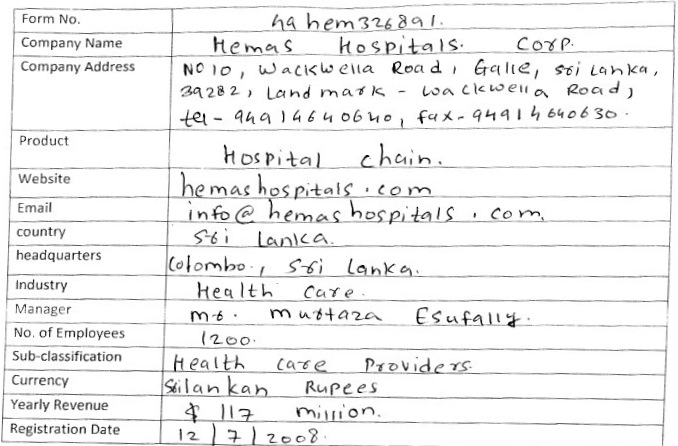 Form No. ha hem326891.
Company Name Hemas Hospitals. Corp.
Company Address No 10, Wackwella Road, Galle, sri Lanka,
39282, Land mark - wackwella Road,
tel - 94914640640, fax - 94914640630.
Product Hospital chain.
Website hemashospitals.com
Email info@hemashospitals.com.
country Sri Lanka.
headquarters Colombo., Sri Lanka.
Industry Health Care.
Manager mr. murtaza Esufally.
No. of Employees 1200.
Sub-classification Health care Providers.
Currency Srilankan Rupees
Yearly Revenue $ 117 million.
Registration Date 12/7/2008.